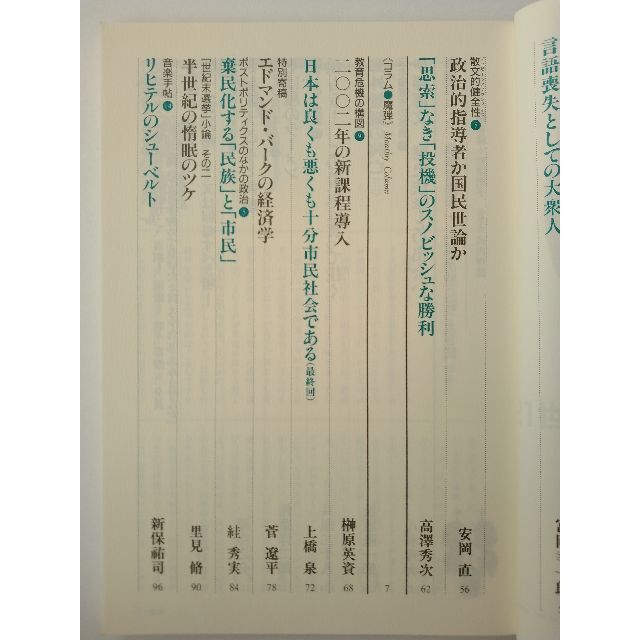 言語喪失としての大衆人
散文的健全性❼
政治的指導者か国民世論か
安岡 直
56
「思索」なき「投機」のスノビッシュな勝利
高澤秀次
62
〈コラム●魔弾〉 Monthly Column
7
教育危機の構図❾
二〇〇二年の新課程導入
榊原英資
68
日本は良くも悪くも十分市民社会である（最終回）
上橋 泉
72
特別寄稿
エドマンド・バークの経済学
菅 遼平
78
ポストポリティクスのなかの政治❺
棄民化する「民族」と「市民」
絓 秀実
84
「世紀末選挙」小論 その二
半世紀の惰眠のツケ
里見 脩
90
音楽手帖⓮
リヒテルのシューベルト
新保祐司
96